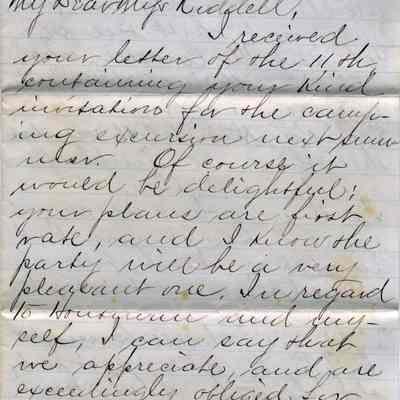 My Dear Mrs Riddell,
I received
your letter of the 11th,
containing your kind
invitation for the camp-
ing excursion next sum-
mer. Of course it
would be delightful;
your plans are first
rate, and I know the
party will be a very
pleasant one. In regard
to and my-
self, I can say that
we appreciate, and are
exceedingly obliged for